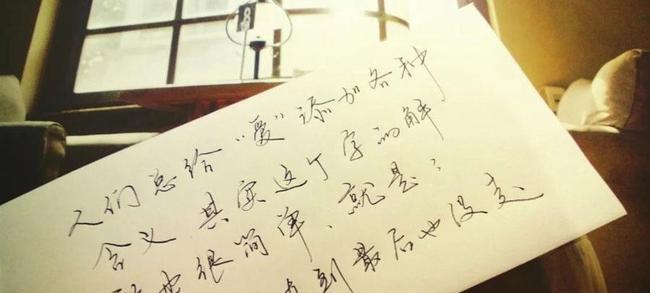 人们总给“爱”添加各种
含义 其实这个字的解
也很简单、就是:
到最后也没变
8